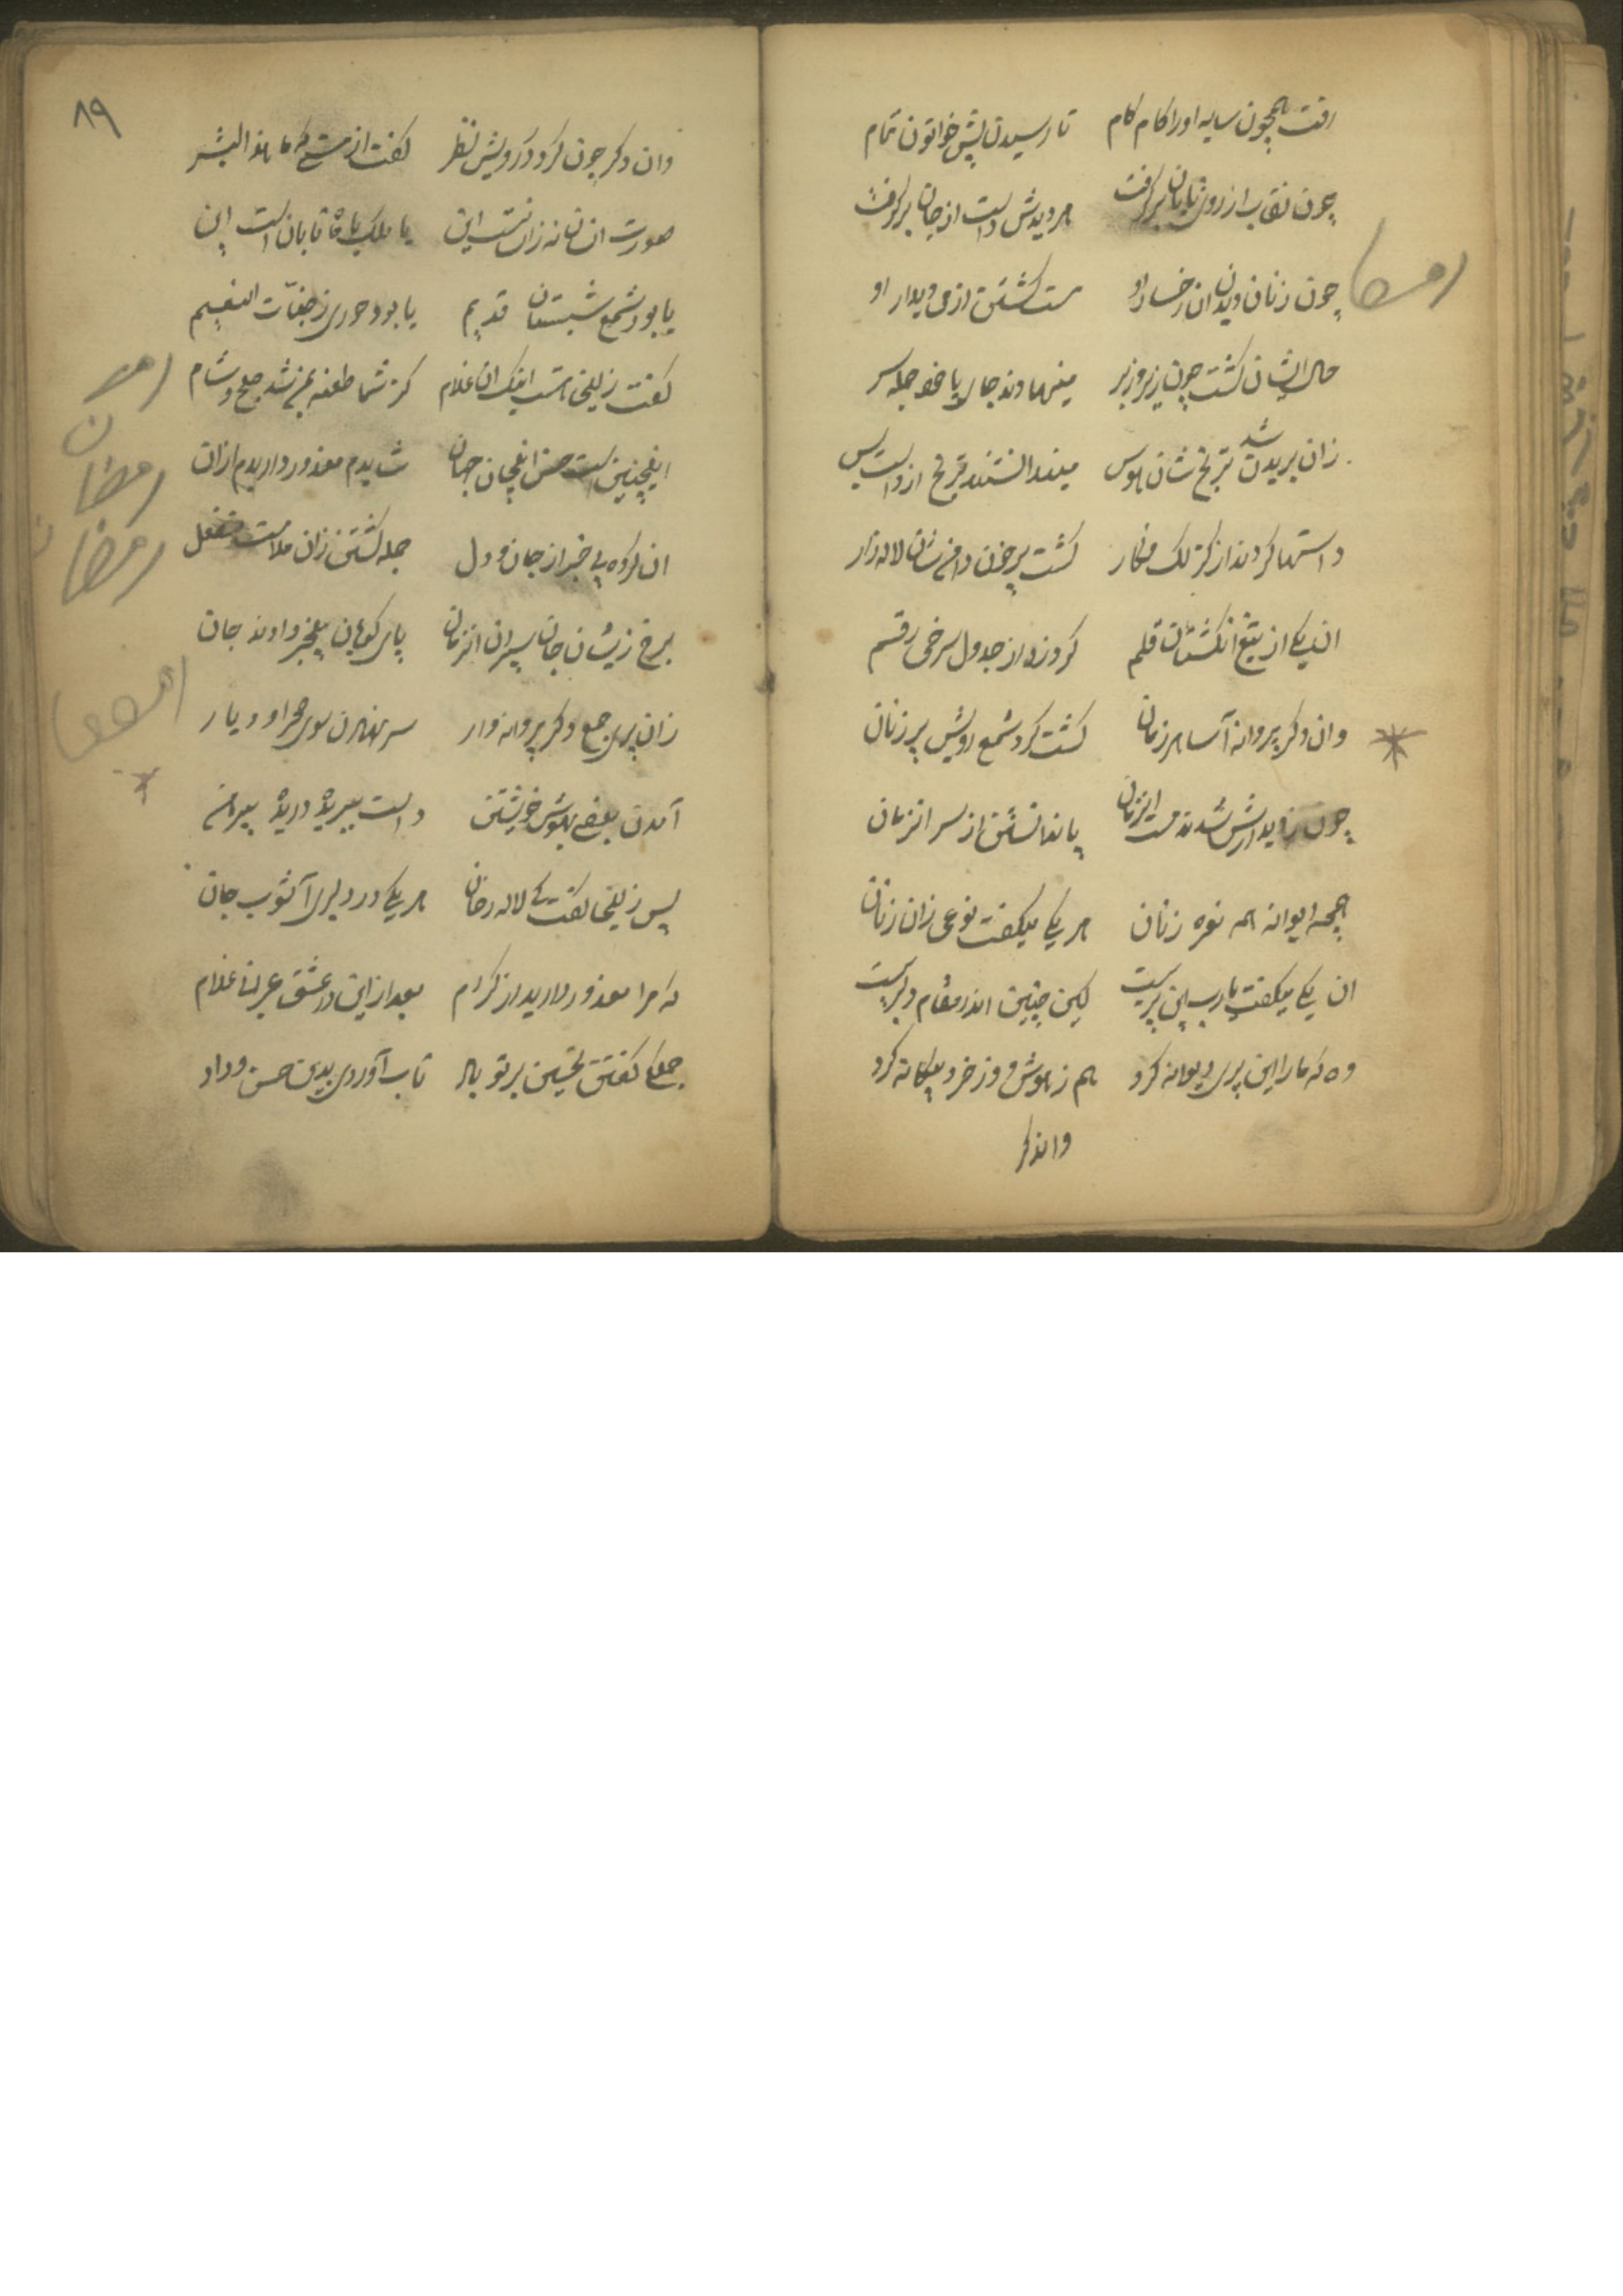 رفت همچون سایه او را کام کام تا رسیدن پیش خواتون تمام
چون نقاب از روی تابان برگرفت هر که دیدش دست از جان برگرفت
چون زنان دیدن ان رخسار او مست کشتن از می دیدار او
حال ایشان کشت چون زیر و زبر جمله سر
زان بریدن ترنج شان شد هوس میندانستند ترنج از دست پس
دستها کردند از کزلک فکار کشت پرخون دامن شان لاله زار
ان یکی از تیغ انکشتان قلم کرد زد از جدول سرخی رقم
وان دکر پروانه آسا هر زمان کشت کرد شمع رویش پر زنان
چون ز دیدارش شدند مست انزمان پا ندانستن از سر انزمان
همچه دیوانه همه نعره زنان هر یکی میکفت نوعی زان زنان
ان یکی میکفت یارب این پریست لیکن چنین اندر مقام دلبریست
وه که مارا این پری دیوانه کرد هم ز هوش و وز خرد بیکانه کرد
واندکر
۸۹
وان دکر چون کرد در رویش نظر کفت از مستی که ما هذا البشر
صورت انسانه زان نیست این یا ملک یا ماه تابان است این
یا بود شمع شبستان قدیم یا بود حوری ز جنّات النعیم
کفت زلیخا هست اینک ان غلام کز شما طعنه بمن شد صبح و شام
اینچنین است حسن اینچان جهان شایدم معذور داریدم ازان
ان کروه بی خبر از جان و دل جمله کشتن زان ملامت منفعل
برخ زیشان جان سپردن انزمان پای کوبان بیخبر دادند جان
زان پری جمع دکر پروانه وار سر نهادن سوی صحرا و دیار
آمدن بعضی بهوش خویشتن دست ببریده دریده پیرهن
پس زلیخا کفت کی لاله رخان هر یکی در دلبری آشوب جان
که مرا معذور دارید از کرام بعد ازین در عشق عبرانی غلام
جمله کفتن تحسین بر تو باد تاب آوردی بدین حسن و داد
رمضان
رمضان